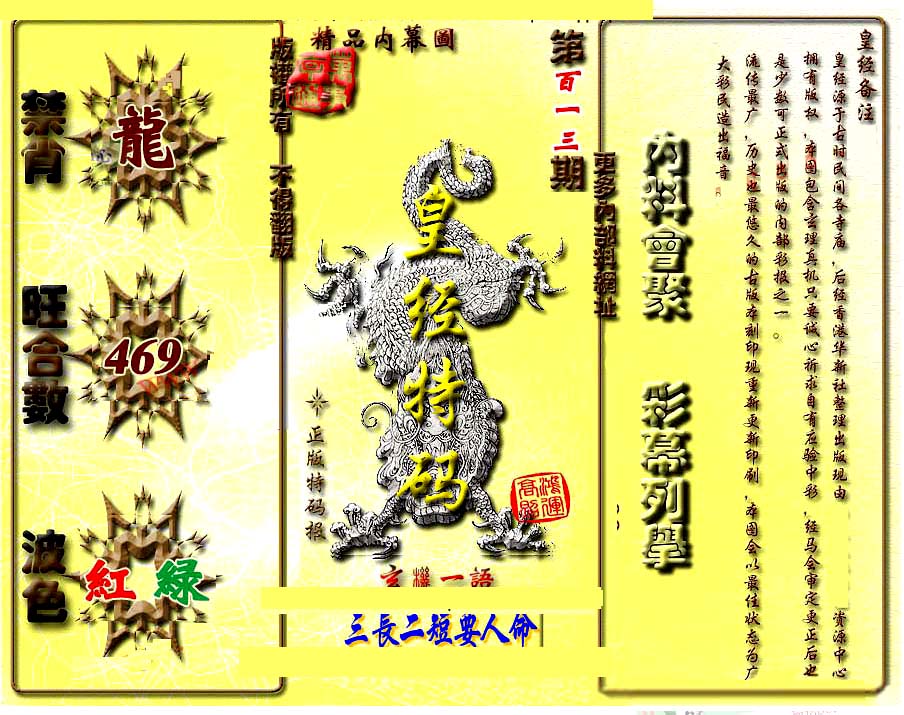 精品内幕圖
版權所有 不得翻版
第百一三期
更多内部料網址
禁肖
龍
旺合數
469
波色
紅 綠
皇经特码
正版特码报
鸿運高照
玄機一語
三長二短要人命
内料會聚
彩幕列舉
皇经备注
皇经源于古时民间各寺庙,后经香港华新社整理出版现由 资源中心
拥有版权,本图包含玄理真机只要诚心祈求自有应验中彩,经马会审定更正后也
是少数可正式出版的内部彩报之一。
流传最广,历史也最悠久的古版本刻印现重新更新印刷,本图会以最佳状态为广
大彩民造出福音